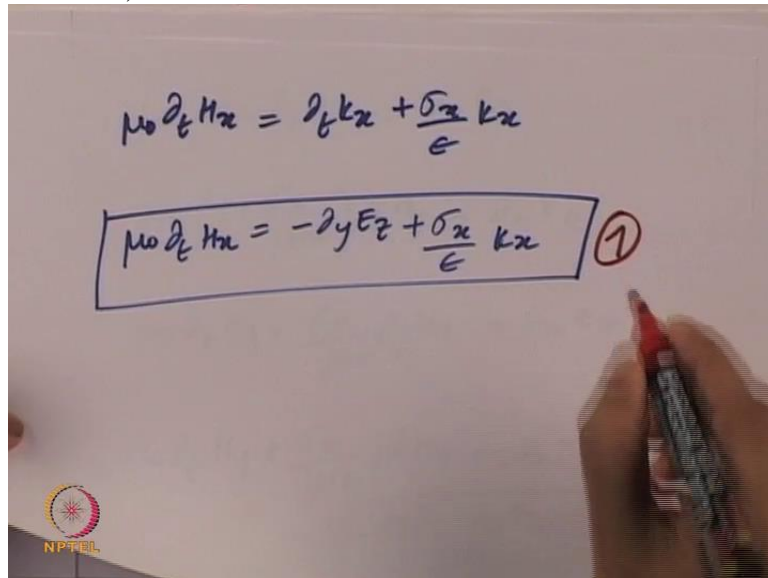 μ₀ ∂ₜ Hₓ = ∂ₜ Kₓ + σₓ/ϵ Kₓ
μ₀ ∂ₜ Hₓ = -∂y Ez + σₓ/ϵ Kₓ ①
NPTEL